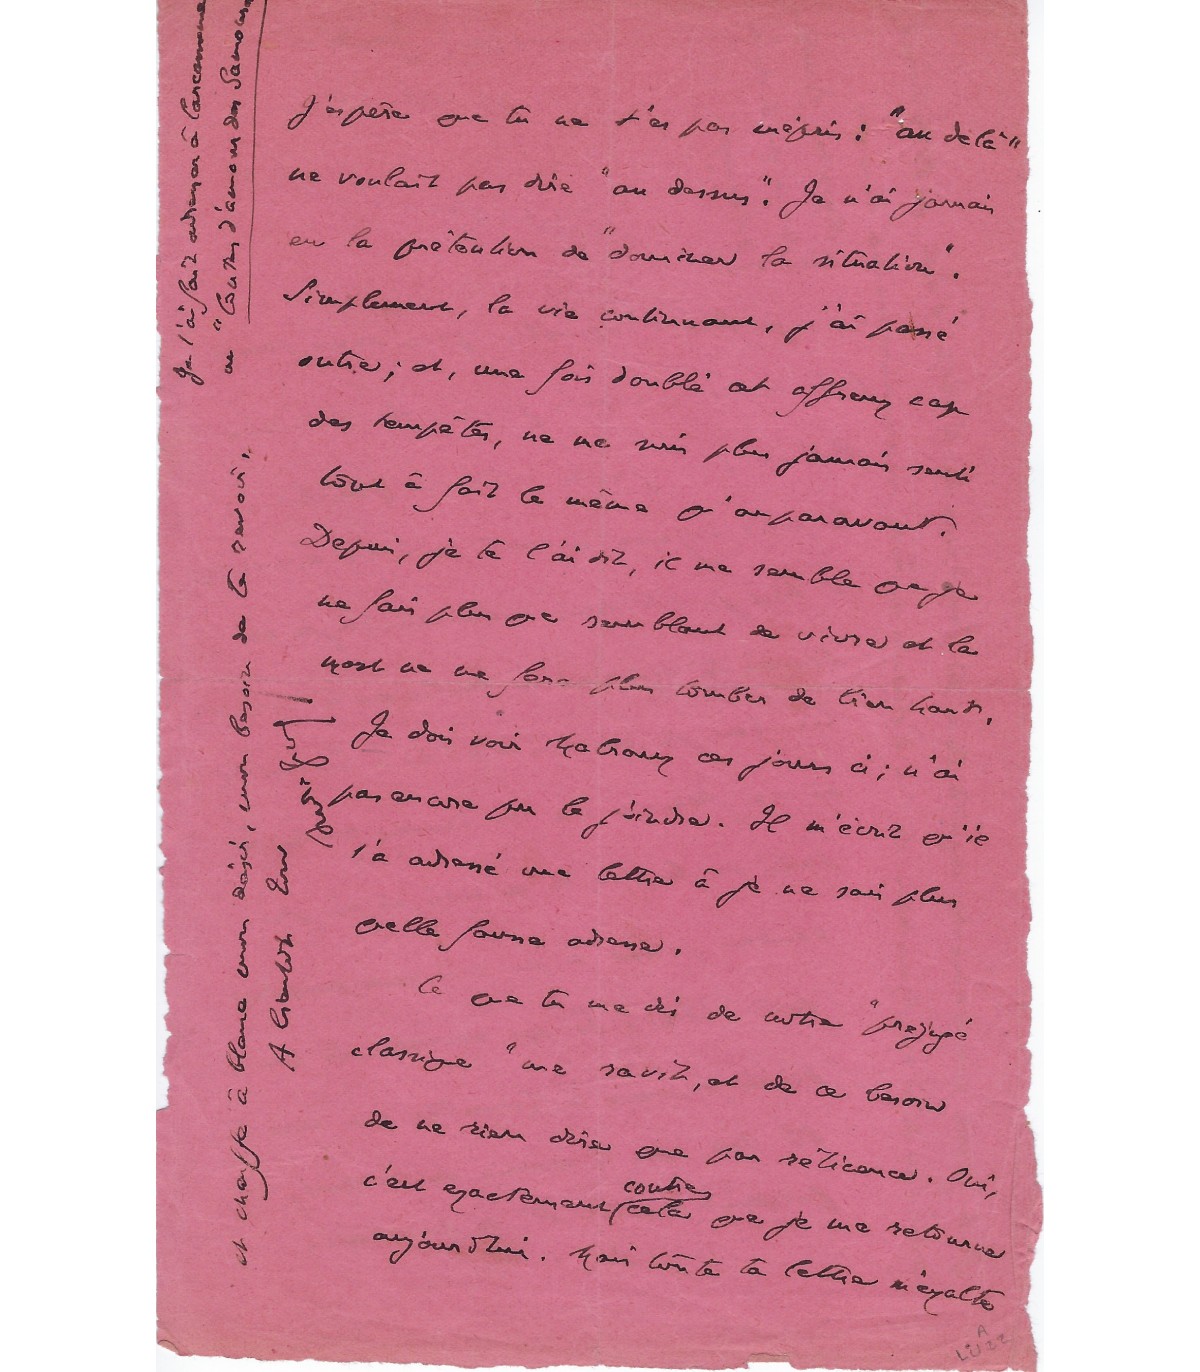 J'espère que tu ne t'es pas mépris : "au delà"
ne voulait pas dire "au dessus". Je n'ai jamais
eu la prétention de "dominer la situation".
Simplement, la vie continuant, j'ai passé
outre ; et, une fois doublé cet affreux cap
des tempêtes, ne me suis plus jamais senti
tout à fait le même qu'auparavant.
Depuis, je te l'ai dit, il me semble que je
ne fais plus que semblant de vivre et la
mort ne me fera plus tomber de bien haut.
Je dois voir Malraux ces jours ci ; n'ai
pas encore pu le joindre. Il m'écrit qu'il
t'a adressé une lettre à je ne sais plus
quelle fausse adresse.
Ce que tu me dis de notre "préjugé
classique" me ravit, et de ce besoin
de ne rien dire que par réticence. Oui,
c'est exactement contre
cela que je me retourne
aujourd'hui. Mais toute ta lettre m'exalte
et chauffe à blanc mon désir, mon besoin de te revoir.
A bientôt Ton
André Gide
Je l'ai fait adresser à
un "